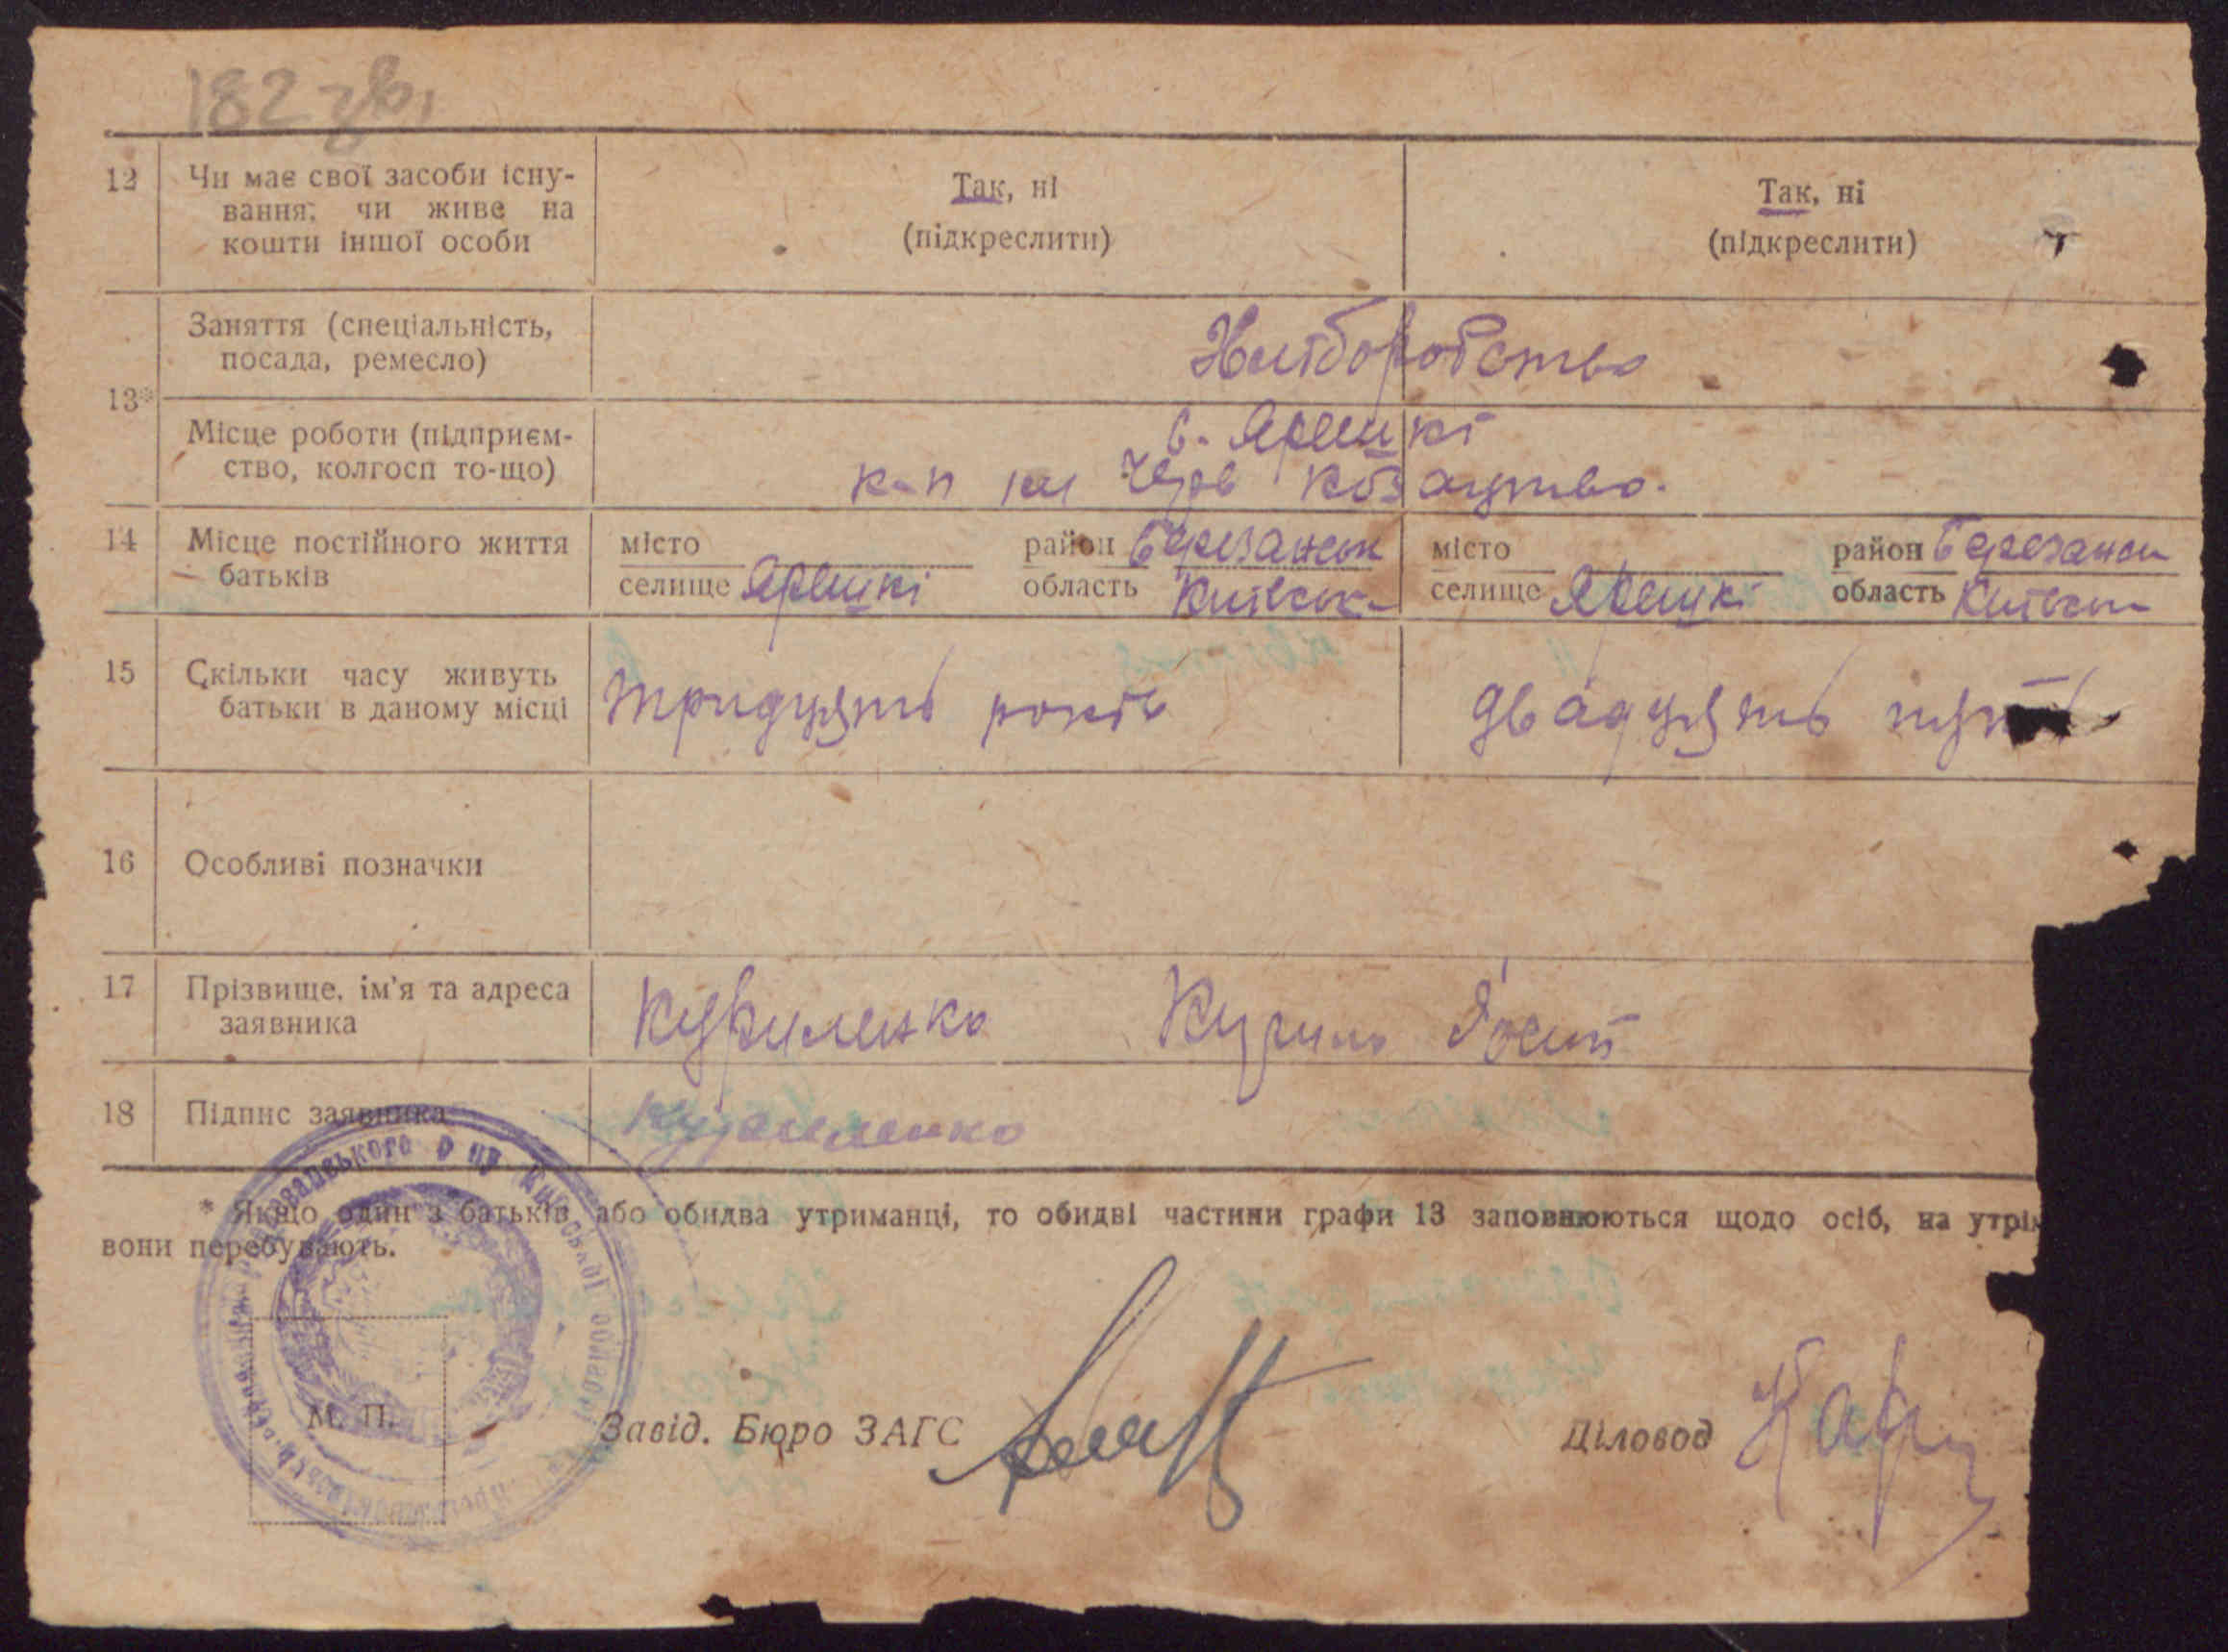 182 зв.
12 Чи має свої засоби існу-
вання, чи живе на
кошти іншої особи
Так, ні
(підкреслити)
Так, ні
(підкреслити)
13* Заняття (спеціальність,
посада, ремесло)
Хліборобство
Місце роботи (підприєм-
ство, колгосп то-що)
с. Ярешкі
к-п ім Черв козацтва.
14 Місце постійного життя
батьків
місто
селище Ярешкі
район Березанськ
область Київськ
місто
селище Ярешкі
район Березанськ
область Київськ
15 Скільки часу живуть
батьки в даному місці
тридцять років
двадцять
16 Особливі позначки
17 Прізвище, ім'я та адреса
заявника
Куриленко
18 Підпис заявника
Куриленко
* Якщо один з батьків або обидва утриманці, то обидві частини графи 13 заповнюються щодо осіб, на
вони перебувають.
М. П.
Завід. Бюро ЗАГС
Діловод